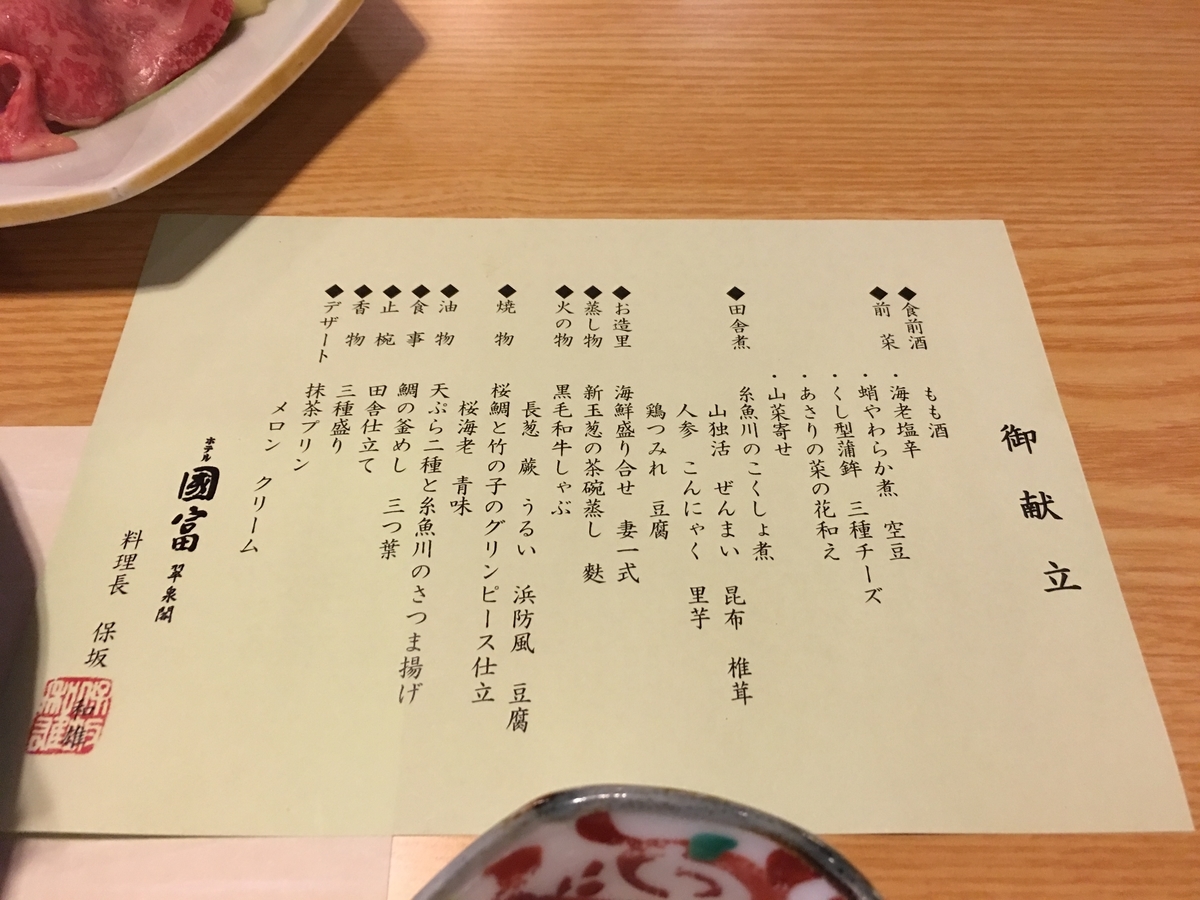 御献立
◆食前酒
もも酒
◆前菜
・海老塩辛
・蛸やわらか煮 空豆
・くし型蒲鉾 三種チーズ
・あさりの菜の花和え
・山菜寄せ
◆田舎煮
糸魚川のこくしょ煮
山独活 ぜんまい 昆布 椎茸
人参 こんにゃく 里芋
鶏つみれ 豆腐
◆お造里
海鮮盛り合せ 妻一式
◆蒸し物
新玉葱の茶碗蒸し 麩
◆火の物
黒毛和牛しゃぶ
長葱 蕨 うるい 浜防風 豆腐
◆焼物
桜鯛と竹の子のグリンピース仕立
桜海老 青味
◆油物
天ぷら二種と糸魚川のさつま揚げ
◆食事
鯛の釜めし 三つ葉
◆止椀
田舎仕立て
◆香物
三種盛り
◆デザート
抹茶プリン
メロン クリーム
ホテル國富 翠泉閣
料理長 保坂 和雄